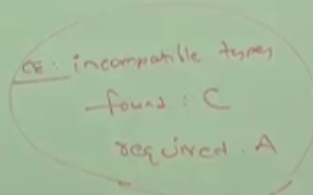 CE: incompatible types
found : C
required : A